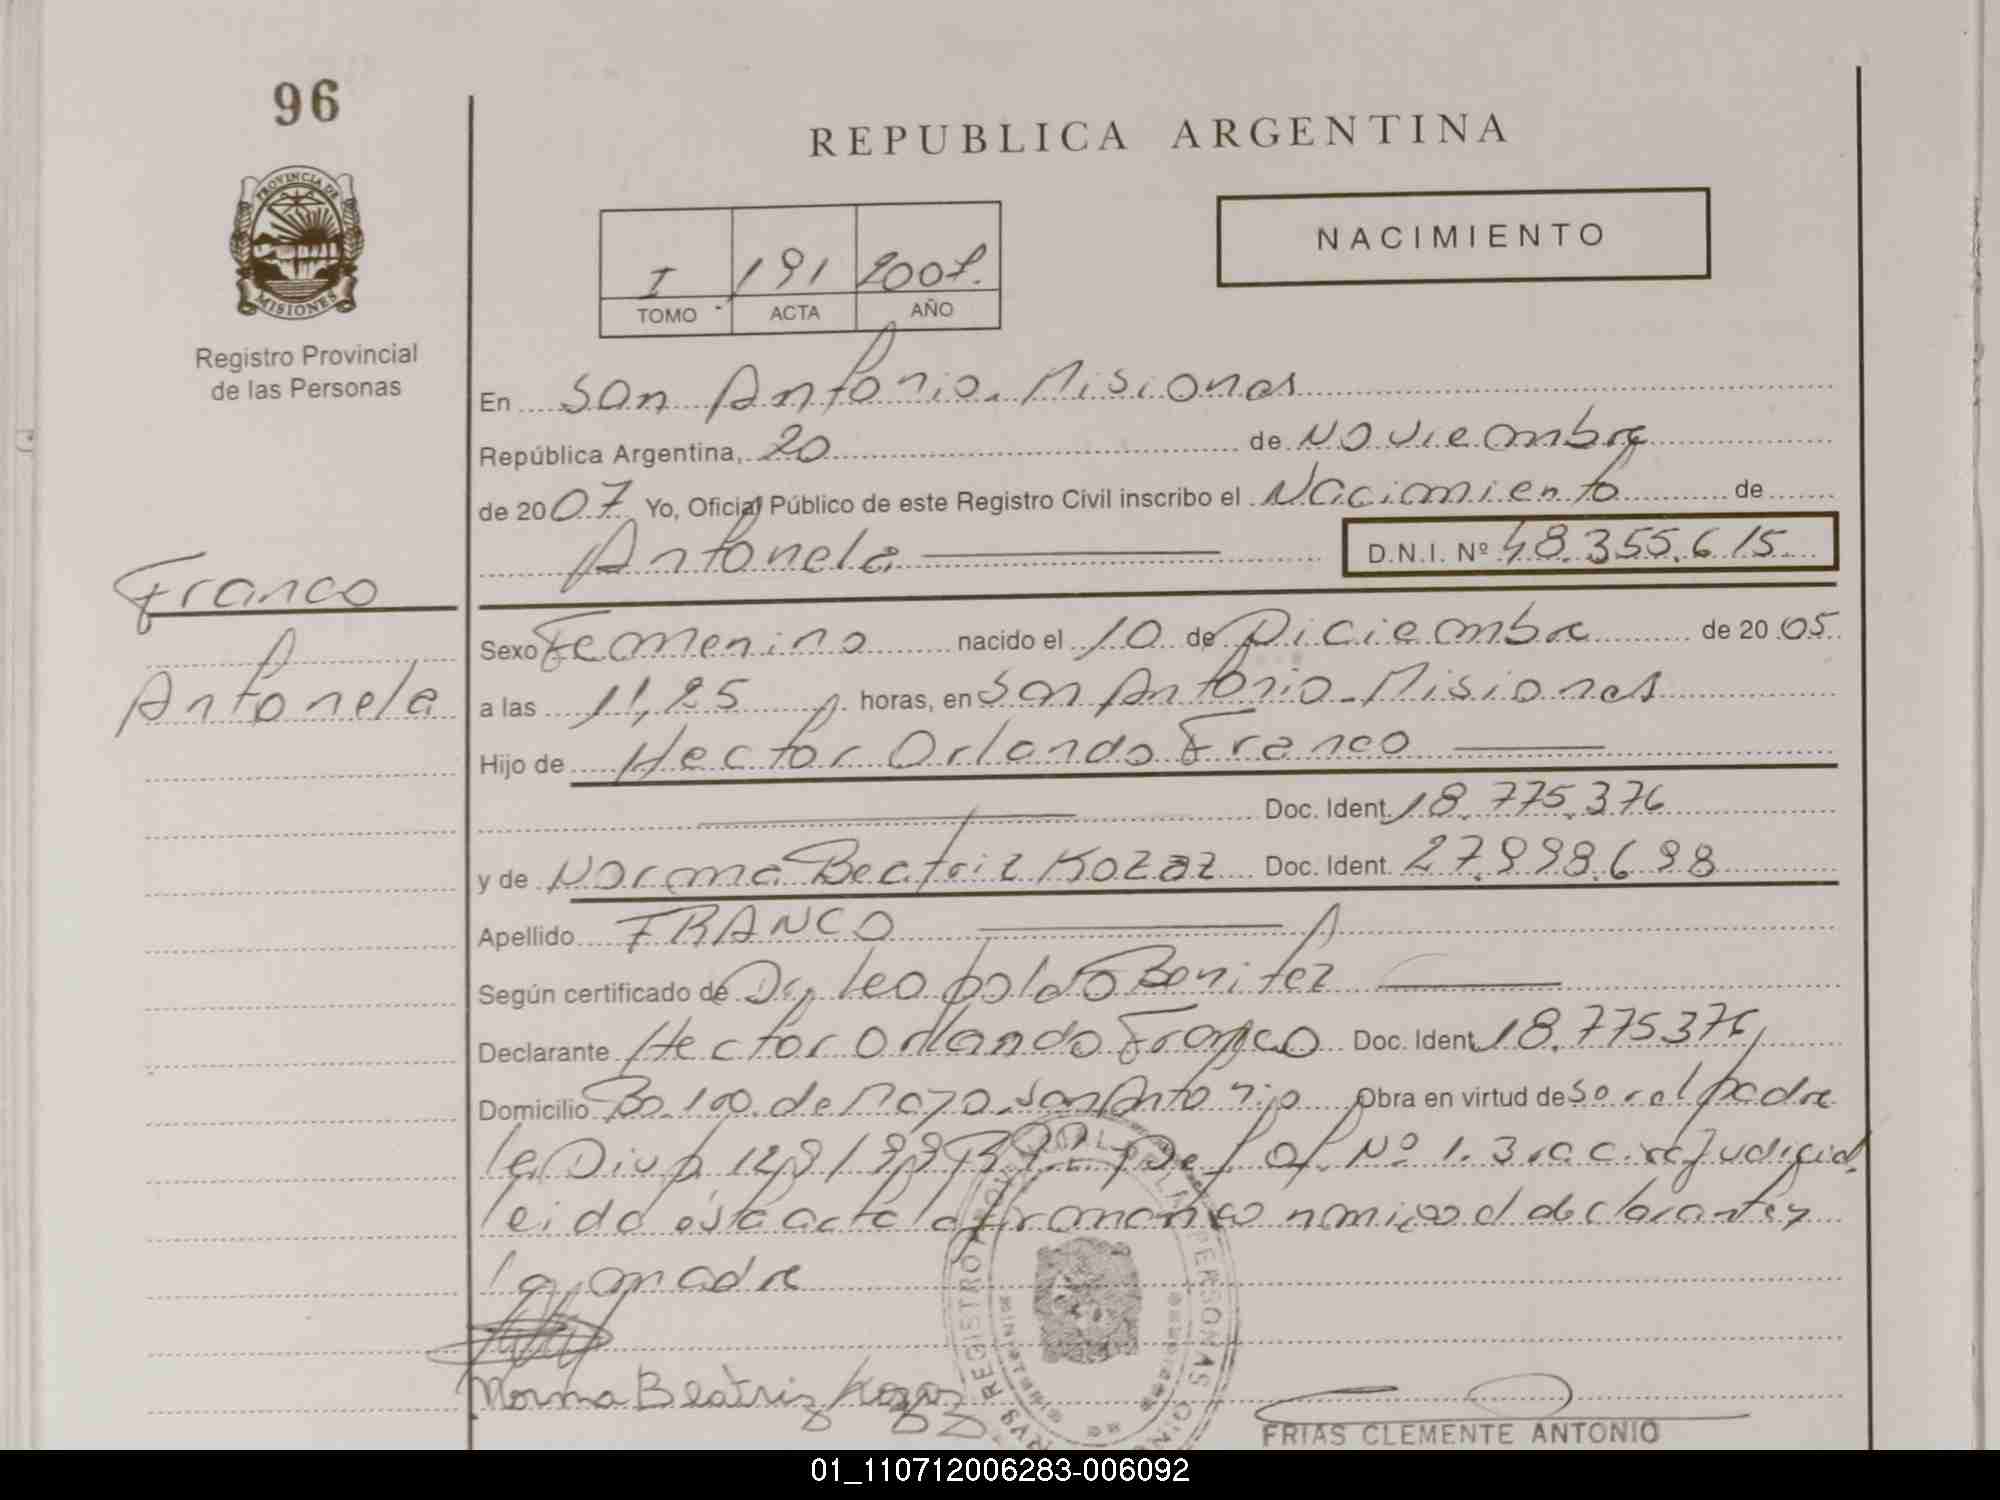 96
REPUBLICA ARGENTINA
PROVINCIA DE
MISIONES
NACIMIENTO
I 191 2007.
TOMO ACTA AÑO
Registro Provincial
de las Personas
En San Antonio. Misiones
República Argentina, 20 de Noviembre
de 2007 Yo, Oficial Público de este Registro Civil inscribo el Nacimiento de
Antonela D.N.I. Nº 48.355.615
Franco
Antonela
Sexo Femenino nacido el 10 de Diciembre de 2005
a las 11,25 horas, en San Antonio - Misiones
Hijo de Hector Orlando Franco
Doc. Ident. 18.775.376
y de Norma Beatriz Kozaz Doc. Ident. 27.998.698
Apellido FRANCO
Según certificado de Dr. Leopoldo Benitez
Declarante Hector Orlando Franco Doc. Ident. 18.775376
Domicilio Bo. 1ro. de Mayo. San Antonio Obra en virtud de ser el padre
la Disp. 129/99 Nº 1.3ra circ judicial
leida esta acta la firman conmigo el declarante y
la madre
Norma Beatriz Kozaz
FRIAS CLEMENTE ANTONIO
01_110712006283-006092